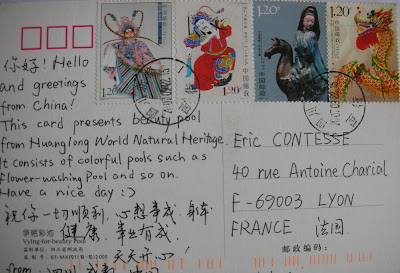 1.20
1.20
1.20
1.20
中国邮政
中国邮政
中国邮政
你好! Hello
and greetings
from China!
This card presents beauty pool
from Huanglong World Natural Heritage.
It consists of colorful pools such as
flower-washing Pool and so on.
Have a nice day :)
祝你一切顺利,心想事成,身体
健康,事业有成
天天开心!
争艳彩池
Vying-for-beauty Pool
Eric CONTESSE
40 rue Antoine Charial
F-69003 LYON
FRANCE 法国
邮政编码: